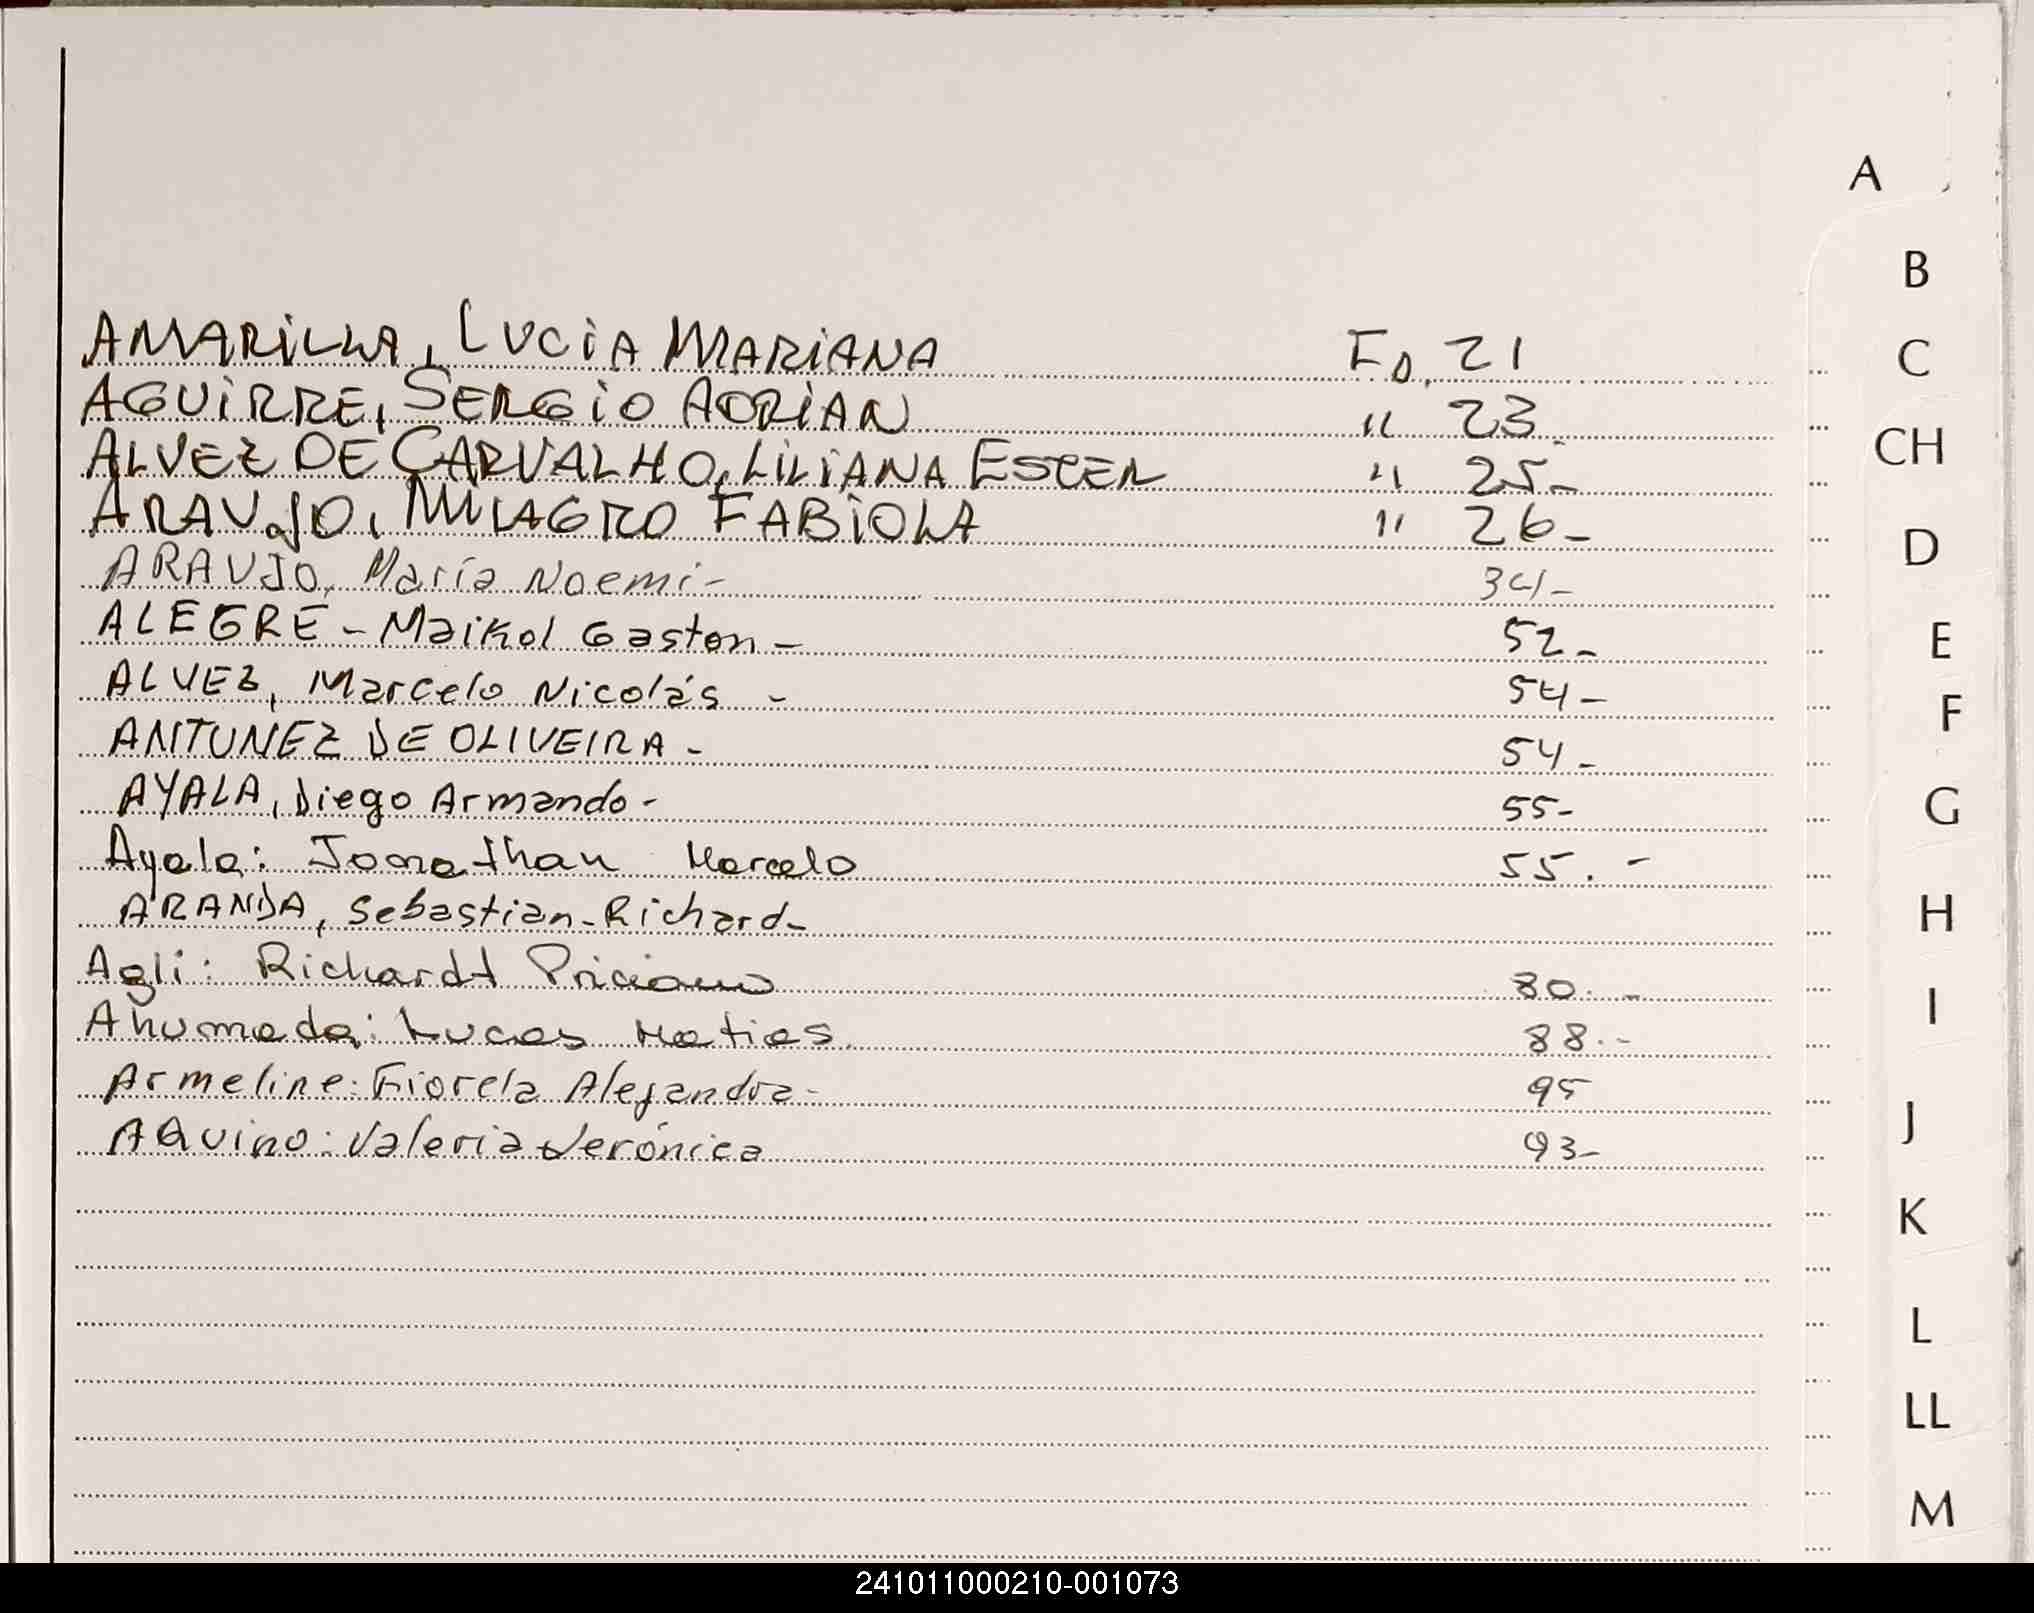 A
B
AMARILLA, LUCIA MARIANA Fo. 21
C
AGUIRRE, SERGIO ADRIAN " 23
CH
ALVEZ DE CARVALHO, LILIANA ESTER " 25-
ARAUJO, MILAGRO FABIOLA " 26-
D
ARAUJO, María Noemi- 34-
ALEGRE - Maikol Gaston - 52-
E
ALVEZ, Marcelo Nicolás - 54-
F
ANTUNEZ DE OLIVEIRA - 54-
AYALA, Diego Armando - 55-
G
Ayala: Jonathan Marcelo 55.-
ARANDA, Sebastian-Richard-
H
Agli: Richardt 80.-
I
Ahumada: Lucas Matias. 88.-
Armeline: Fiorela Alejandra- 95
J
AQuino: Valeria Verónica 93-
K
L
LL
M
241011000210-001073